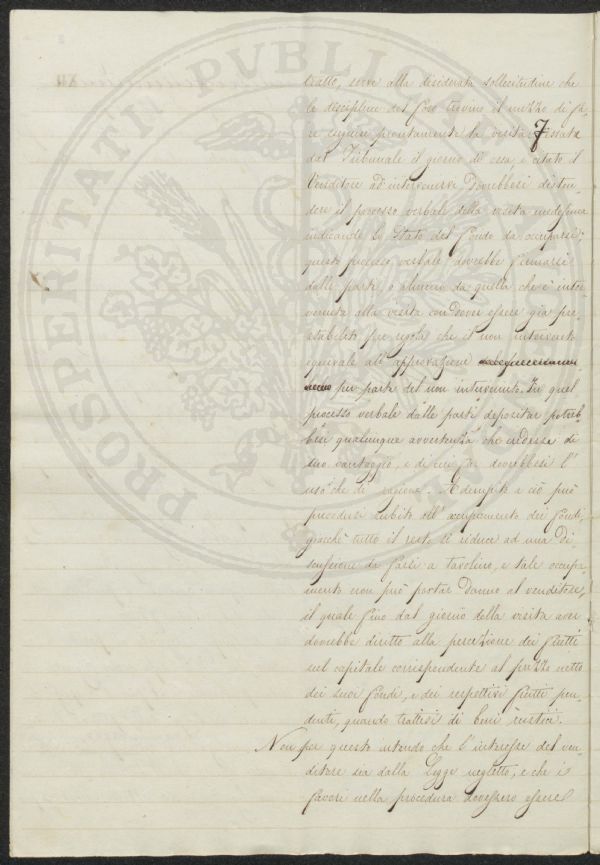 PROSPERITATI PVBLICAE
tratto, serve alla desiderata sollecitudine che
le discipline del foro trovino il mezzo di fa-
re eseguire prontamente la visita. Fissata
dal Tribunale il giorno di essa, e citato il
Venditore ad intervenirvi dovrebbesi disten-
dere il processo verbale della visita medesima
indicando lo Stato del fondo da occuparsi;
questo processo verbale dovrebbe firmarsi
dalle parti, o almeno da quella che è inter-
venuta alla visita con dover essere già pre-
stabilito per regola che il non intervento
equivale all' approvazione
per parte del non intervenuto. In quel
processo verbale dalle parti depositar potreb-
besi qualunque avvertenza che credesse di
suo vantaggio, e di cui far dovrebbesi l'
uso che di ragione. Adempito a ciò può
procedersi subito all' occupamento dei fondi,
giacchè tutto il resto si riduce ad una Di-
scussione da farsi a tavolino, e tale occupa-
mento non può portar danno al venditore,
il quale fino dal giorno della visita aver
dovrebbe diritto alla percezione dei frutti
sul capitale corrispondente al prezzo netto
dei suoi fondi, e dei respettivi frutti pen-
denti, quando trattisi di beni rustici.
Non per questo intendo che l' interesse del ven-
ditore sia dalla Legge negletto, e che i
favori nella procedura dovessero essere